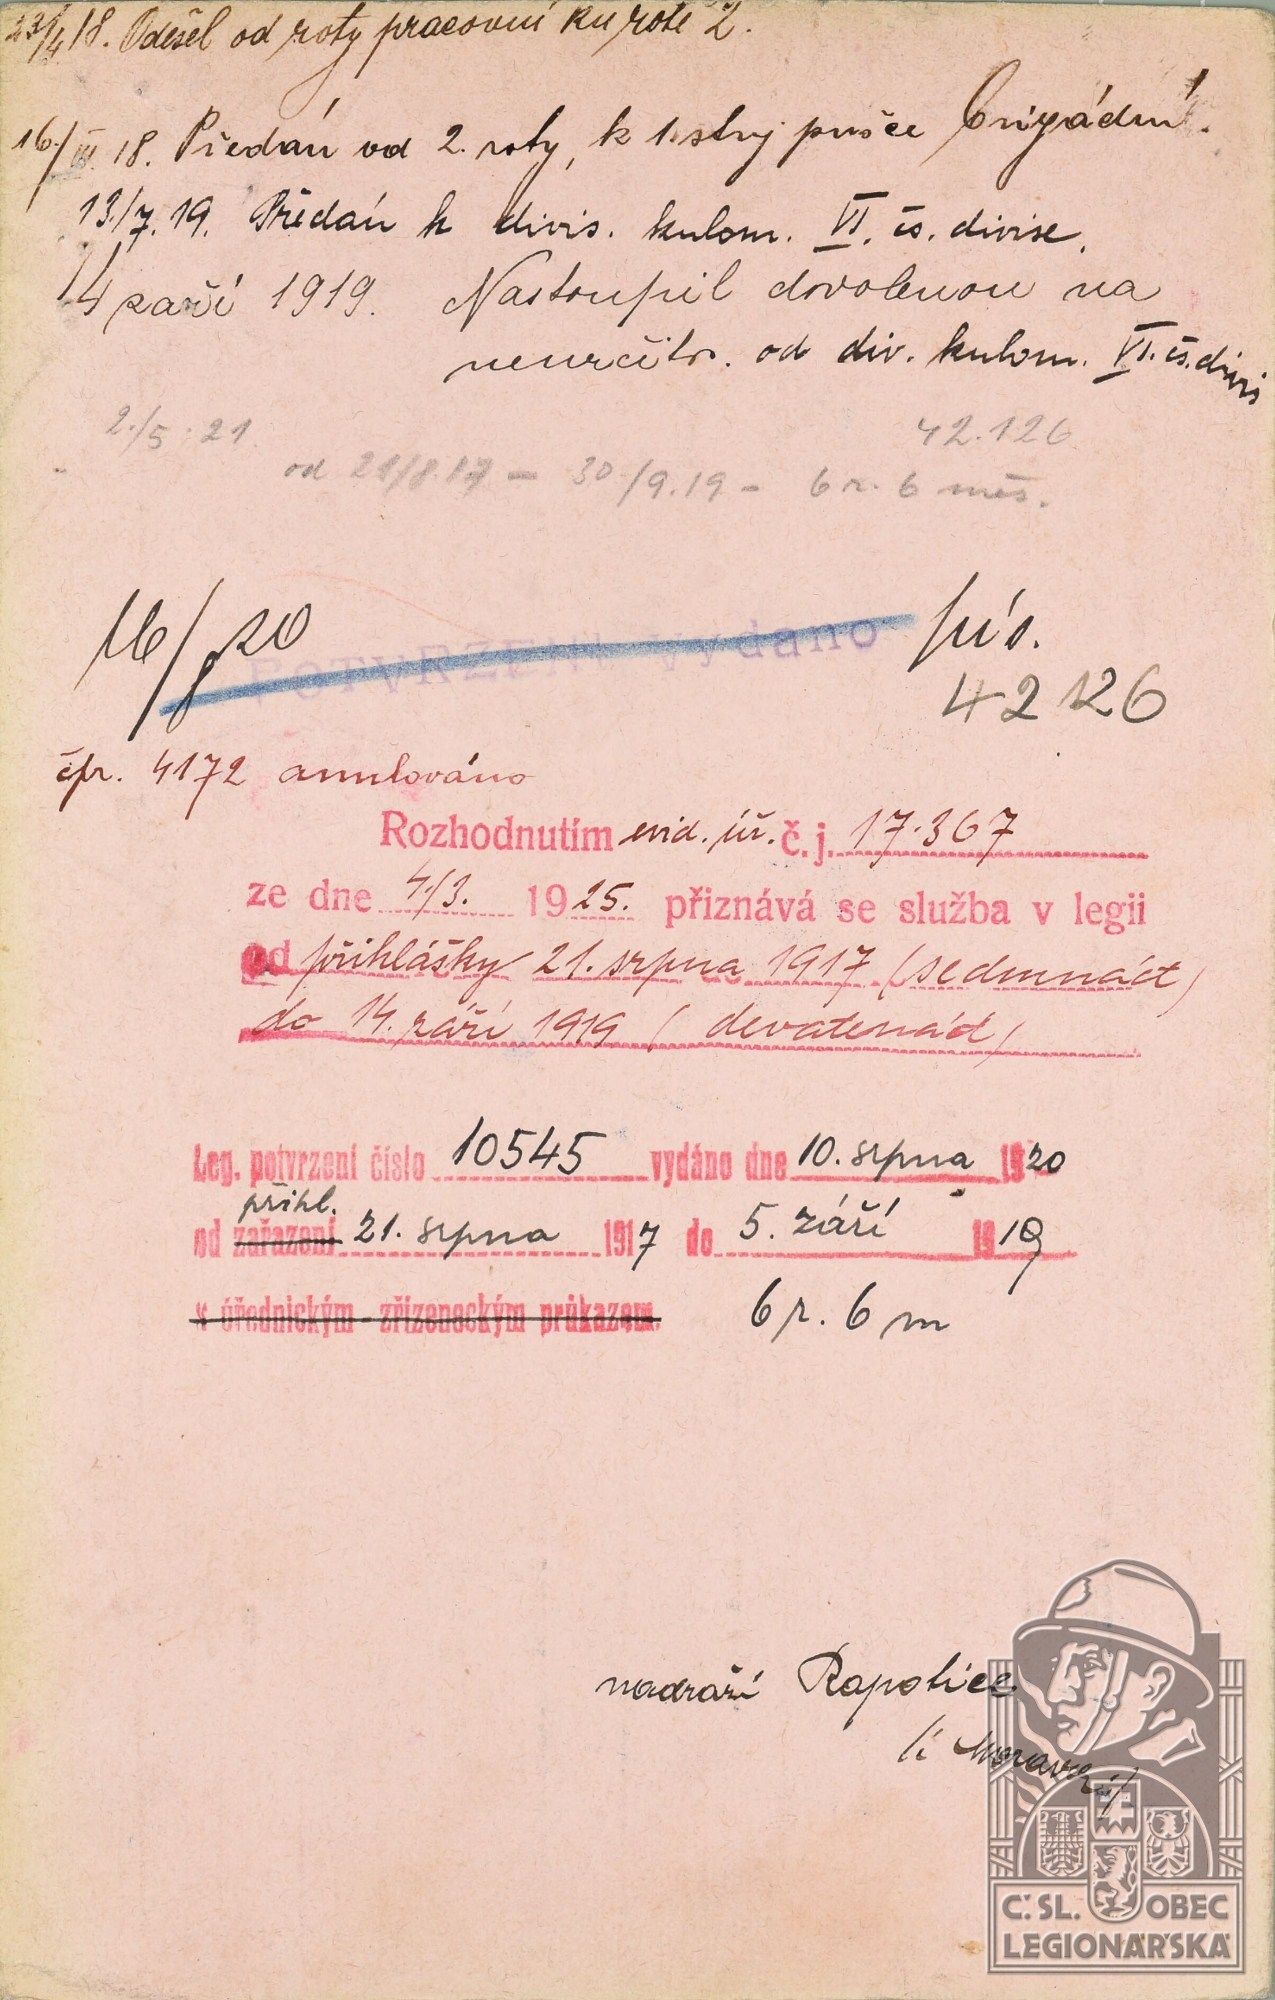 23/4 18. Odešel od roty pracovní ku rotě 2.
16./III. 18. Předán od 2. roty, k 1. stroj pušce brigádní.
13./7. 19. Předán k divis. kulom. VI. čs. divise.
14 září 1919. Nastoupil dovolenou na
neurčito. od div. kulom. VI. čs. divis
2./5. 21. 42.126
od 21/8.17 – 30./9.19 – 6 r. 6 měs.
16/8 20 POTVRZENÍ vydáno pís.
42126
čpr. 4172 anulováno
Rozhodnutím evid. úř. č. j. 17.367
ze dne 4./3. 1925. přiznává se služba v legii
od přihlášky 21. srpna 1917 (sedmnáct)
do 14. září 1919 (devatenáct)
Leg. potvrzení číslo 10545 vydáno dne 10. srpna 1920
přihl.
od zařazení 21. srpna 1917 do 5. září 1919
s úřednickým - zřízeneckým průkazem. 6 r. 6 m
nádraží Rapotice
Č. SL. OBEC
LEGIONÁŘSKÁ